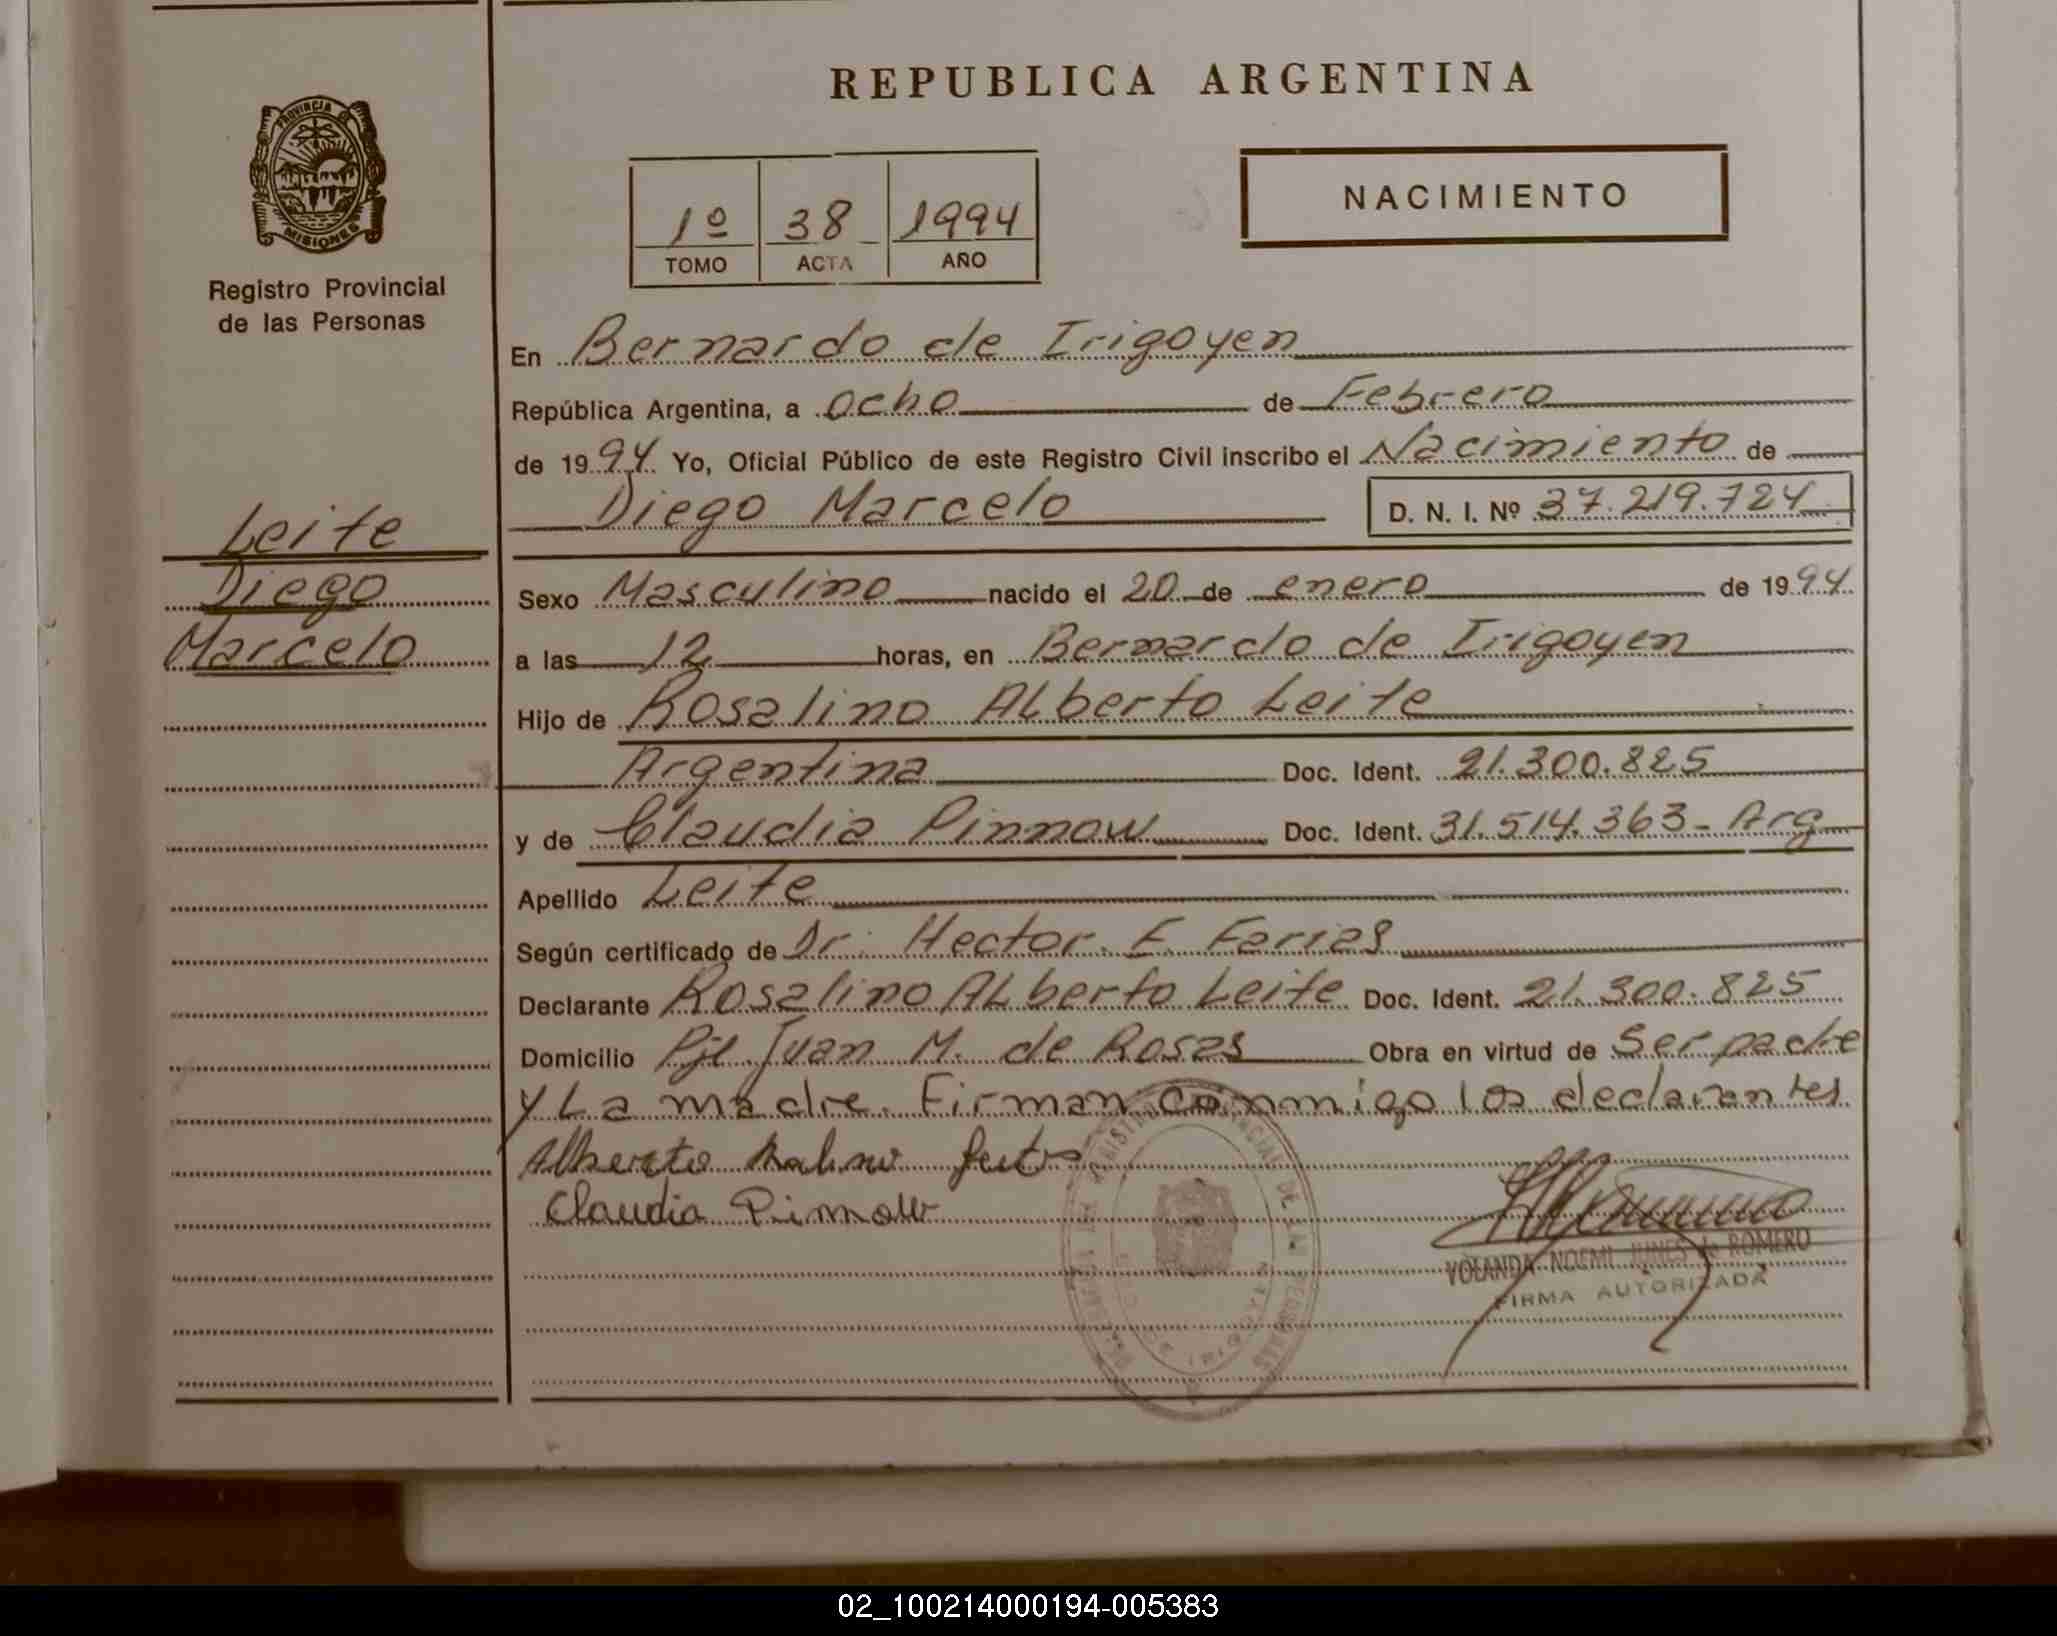 REPUBLICA ARGENTINA
PROVINCIA DE
MISIONES
Registro Provincial
de las Personas
1º 38 1994
TOMO ACTA AÑO
NACIMIENTO
En Bernardo de Irigoyen
República Argentina, a ocho de Febrero
de 1994 Yo, Oficial Público de este Registro Civil inscribo el Nacimiento de
Diego Marcelo D. N. I. Nº 37.219.724
Leite
Diego
Marcelo
Sexo Masculino nacido el 20 de enero de 1994
a las 12 horas, en Bernardo de Irigoyen
Hijo de Rosalino ALberto Leite
Argentina Doc. Ident. 21.300.825
y de Claudia Pinnow Doc. Ident. 31.514.363- Arg
Apellido Leite
Según certificado de Dr. Hector. E. Farias
Declarante Rosalino ALberto Leite Doc. Ident. 21.300.825
Domicilio Pje Juan M. de Rosas Obra en virtud de Ser padre
y La madre. Firman conmmigo los declarantes
Alberto
Claudia Pinnow
YOLANDA NOEMI JUNES de ROMERO
FIRMA AUTORIZADA
02_100214000194-005383